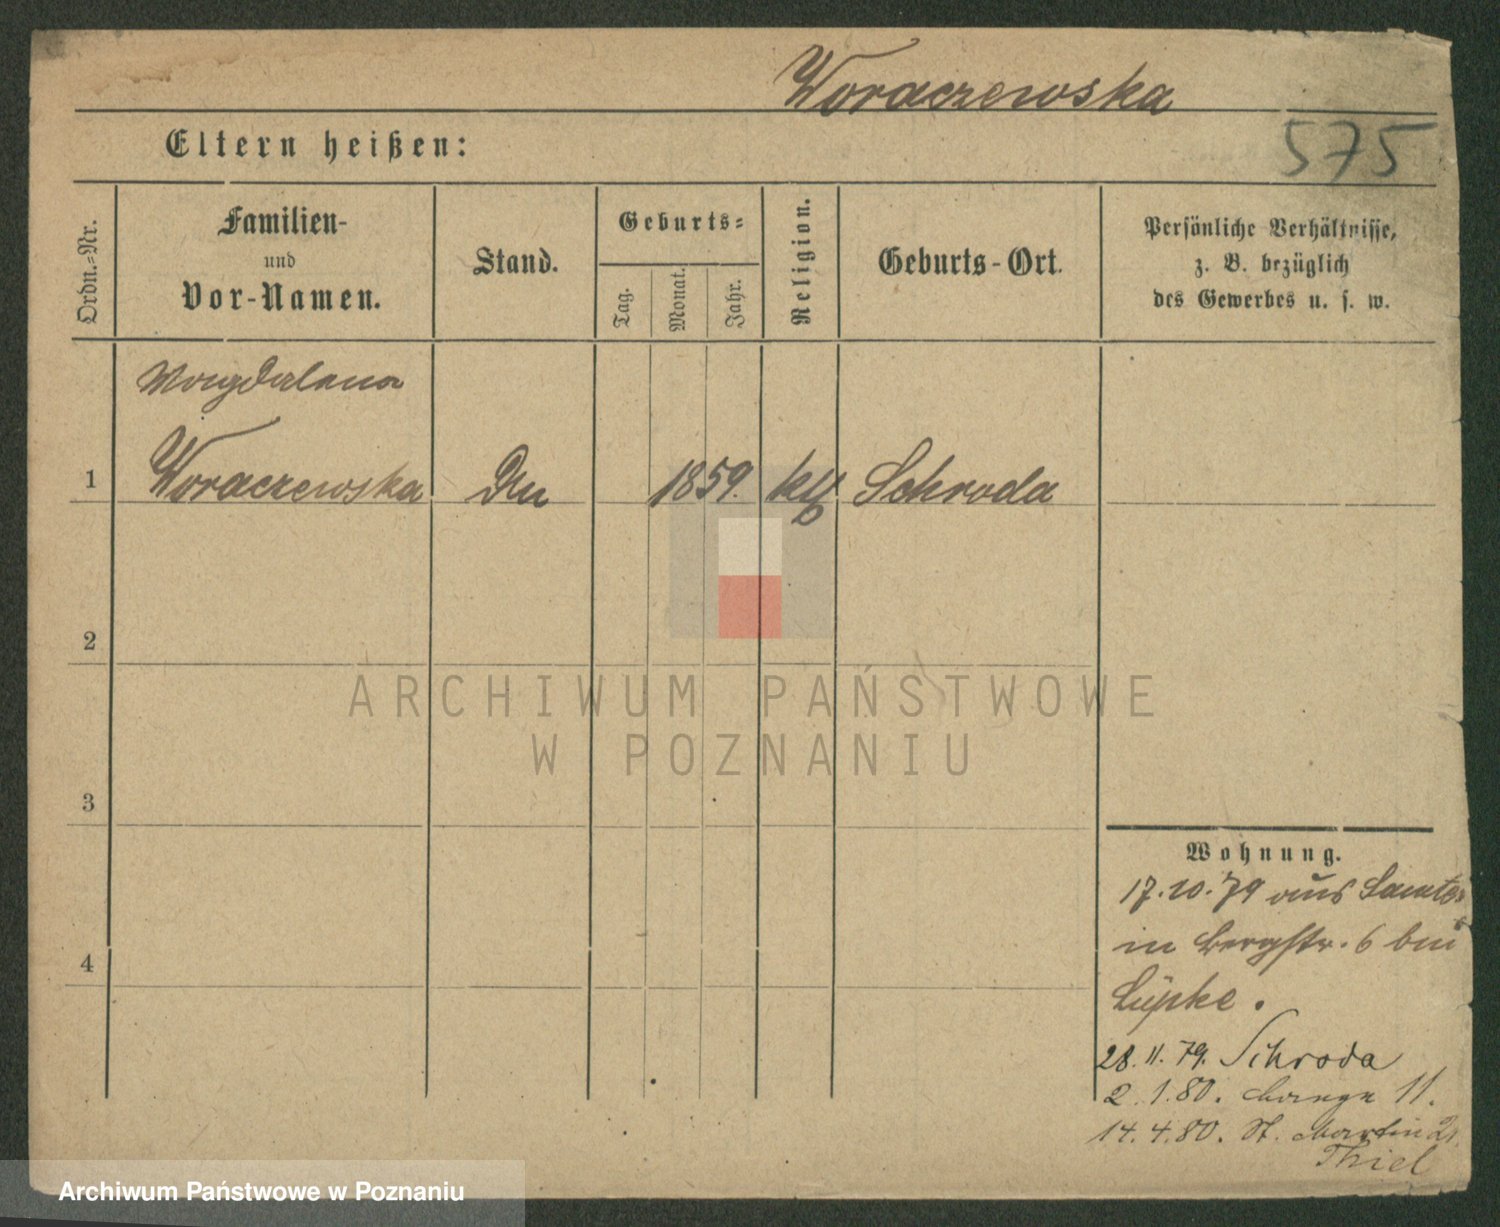 Woraczewska
Eltern heißen:
575
Ordn.-Nr.
Familien-
und
Vor-Namen.
Stand.
Geburts-
Tag.
Monat.
Jahr.
Religion.
Geburts-Ort.
Persönliche Verhältnisse,
z. B. bezüglich
des Gewerbes u. s. w.
Magdalena
1 Woraczewska 1859. kth Schroda
2
3
4
Wohnung.
17.10.79 aus Samter
in Bergstr. 6 bei
Lüpke.
28.11.79. Schroda
2.1.80. 11.
14.4.80. St. Martin
Thiel
ARCHIWUM PAŃSTWOWE
W POZNANIU
Archiwum Państwowe w Poznaniu